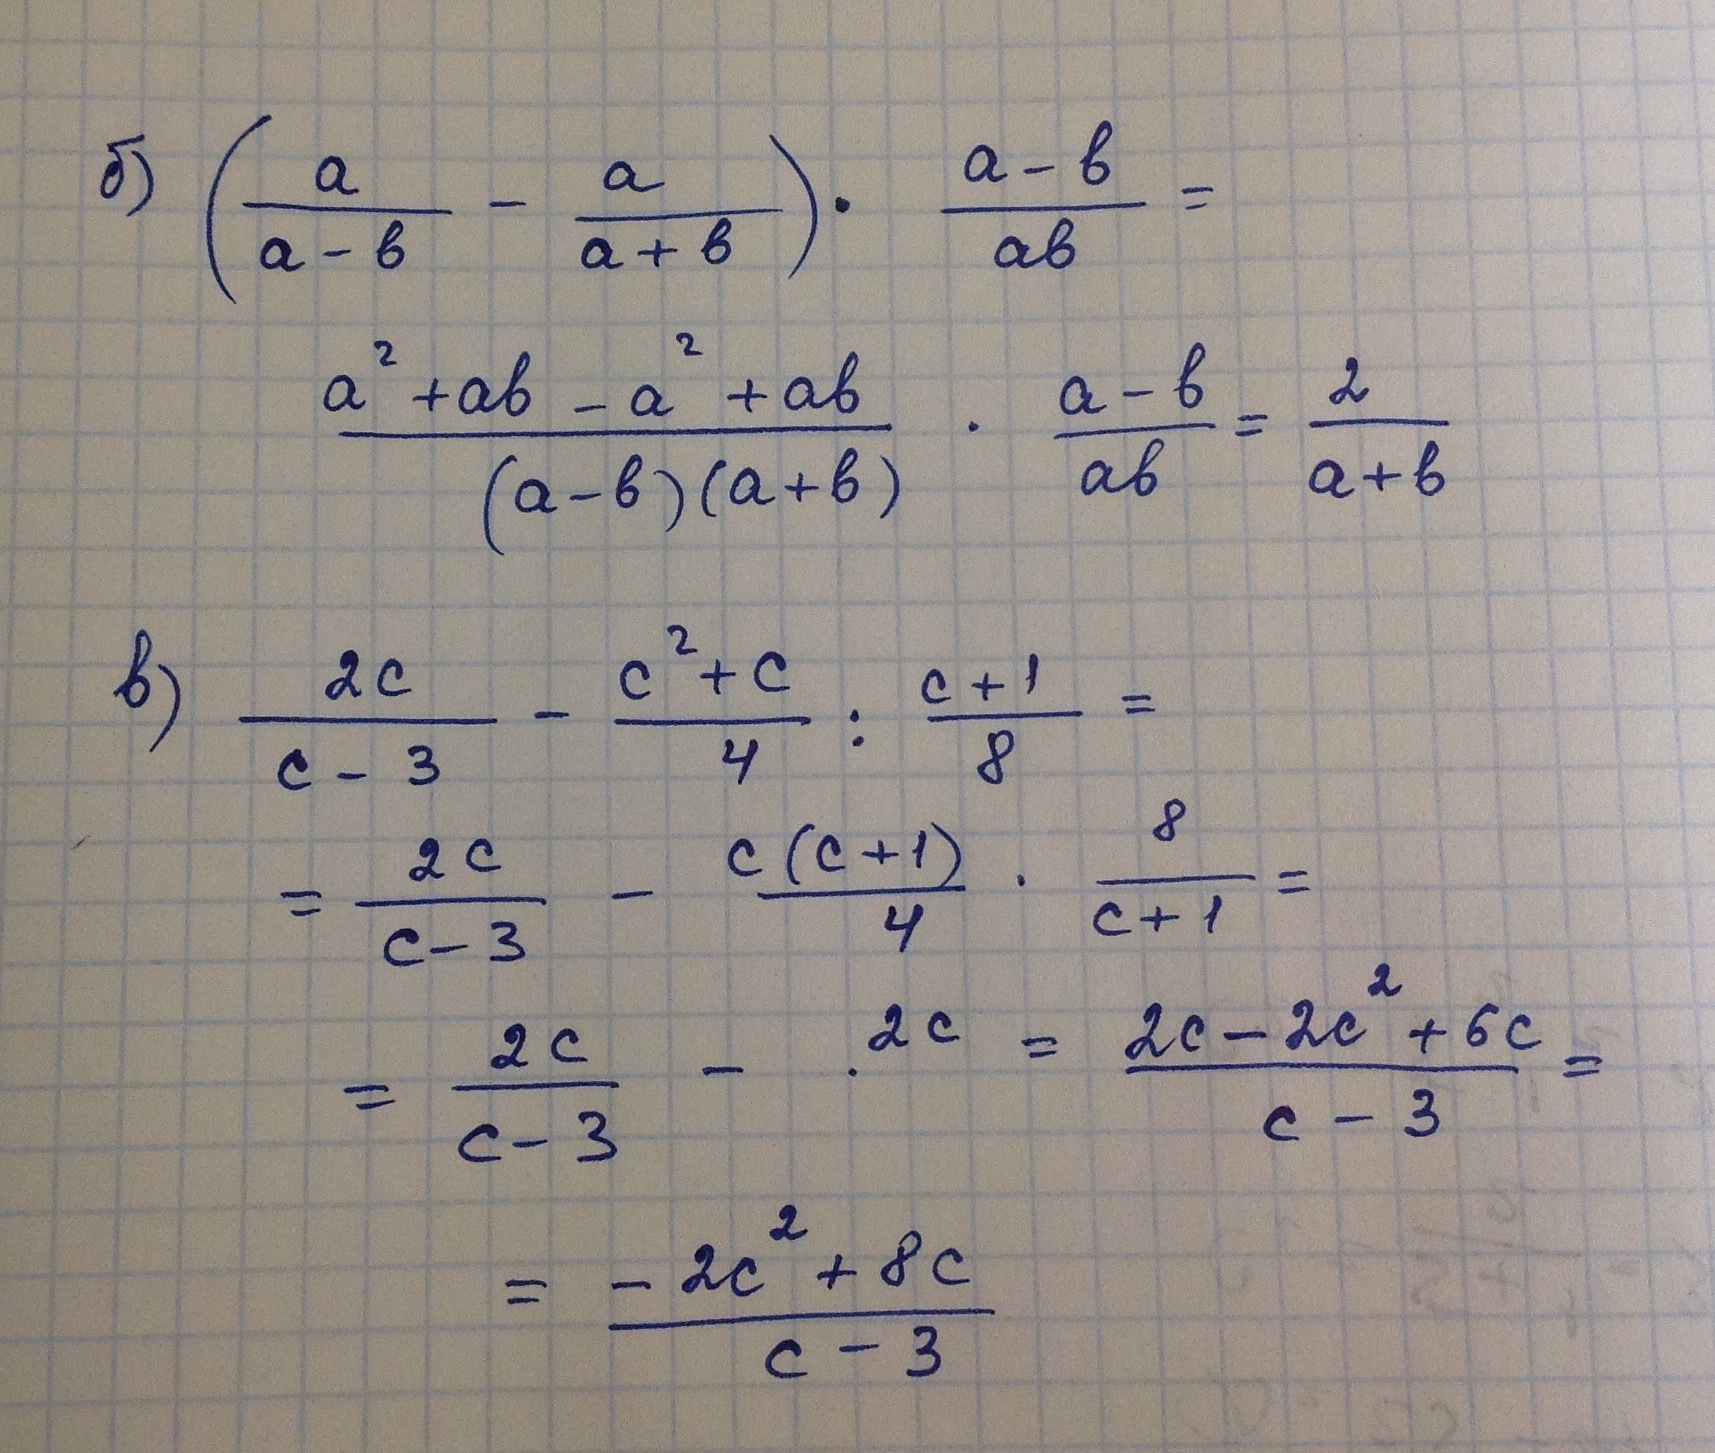 б) (a/(a-в) - a/(a+в)) · (a-в)/(aв) =
(a²+aв-a²+aв)/((a-в)(a+в)) · (a-в)/(aв) = 2/(a+в)
в) 2c/(c-3) - (c²+c)/4 : (c+1)/8 =
= 2c/(c-3) - c(c+1)/4 · 8/(c+1) =
= 2c/(c-3) - · 2c = (2c-2c²+6c)/(c-3) =
= (-2c²+8c)/(c-3)